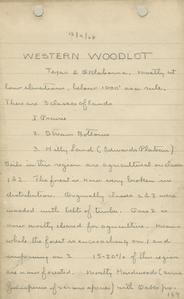 WESTERN WOODLOT
Texas & Oklahoma. Mostly at
low elevations, below 1000' as a rule.
There are 3 classes of lands
1. Prairie
2. Stream Bottoms
3. Hilly Land (Edwards Plateau)
Soils in this region are agricultural on classes
1 & 2. The forest is now very broken in
distribution. Originally Glades 2 & 3 were
wooded with belt of timber. Class 2 is
now mostly cleared for agriculture. Mean-
while the forest is encroaching on 1 and
improving on 3. 15-20% of this region
are now forested. Mostly Hardwoods (some
Junipers of various species) with Oaks pre-